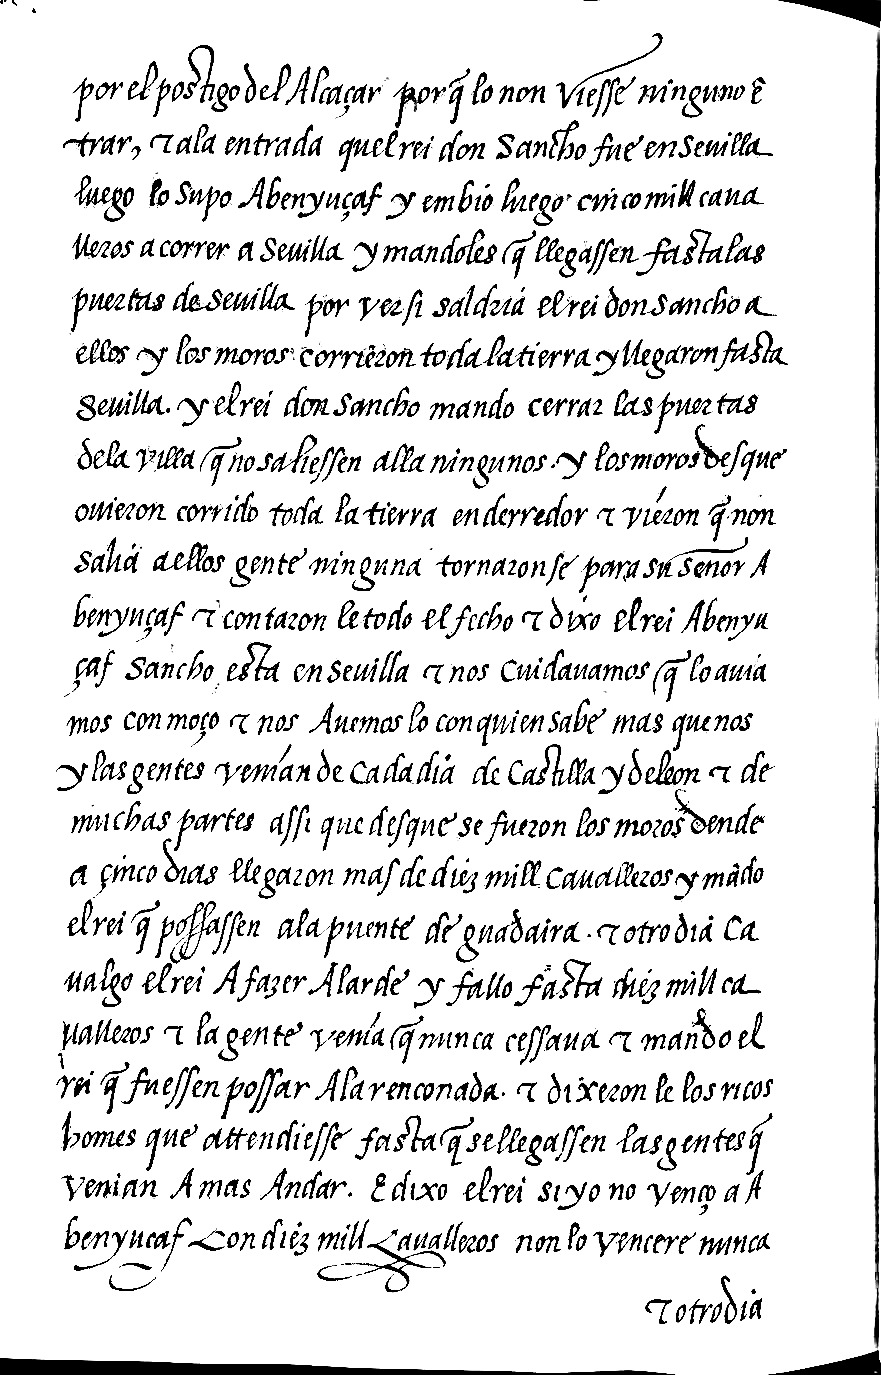 por el postigo del Alcaçar porq̃ lo non viesse ninguno ẽ
trar, ⁊ ala entrada quel rei don Sancho fue en Seuilla
luego lo Supo Abenyuçaf y embió luego cinco mill caua
lleros a correr a Seuilla y mandoles q̃ llegassen fasta las
puertas de Seuilla por ver si saldriá el rei don Sancho a
ellos y los moros corrieron toda la tierra y llegaron fasta
Seuilla. y el rei don Sancho mando cerrar las puertas
dela villa q̃ no saliessen alla ningunos. y los moros desque
ouieron corrido toda la tierra en derredor ⁊ viéron q̃ non
saliá a ellos gente ninguna tornaronse para su señor A
benyuçaf ⁊ contaron le todo el fecho ⁊ dixo el rei Abenyu
çaf Sancho esta en Seuilla ⁊ nos cuidauamos q̃ lo auia
mos con moço ⁊ nos Auemos lo con quien sabe mas que nos
y las gentes venían de cada diá de Castilla y de leon ⁊ de
muchas partes assi que desque se fueron los moros dende
a çinco dias llegaron mas de diéz mill Caualleros y mãdo
el rei q̃ possassen ala puente de guadaira. ⁊ otro diá Ca
ualgo el rei A fazer Alarde y fallo fasta diéz mill ca
ualleros ⁊ la gente venía q̃ nunca cessaua ⁊ mando el
rei q̃ fuessen possar Ala renconada. ⁊ dixeron le los ricos
homes que attendiesse fasta q̃ se llegassen las gentes q̃
venian A mas Andar. E dixo el rei si yo no venço a A
benyucaf Con diéz mill Caualleros non lo vencere nunca
⁊ otro diá